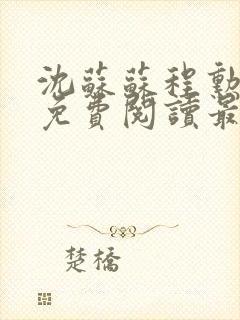 沈蘇蘇程勳
免費閱讀最
楚橋